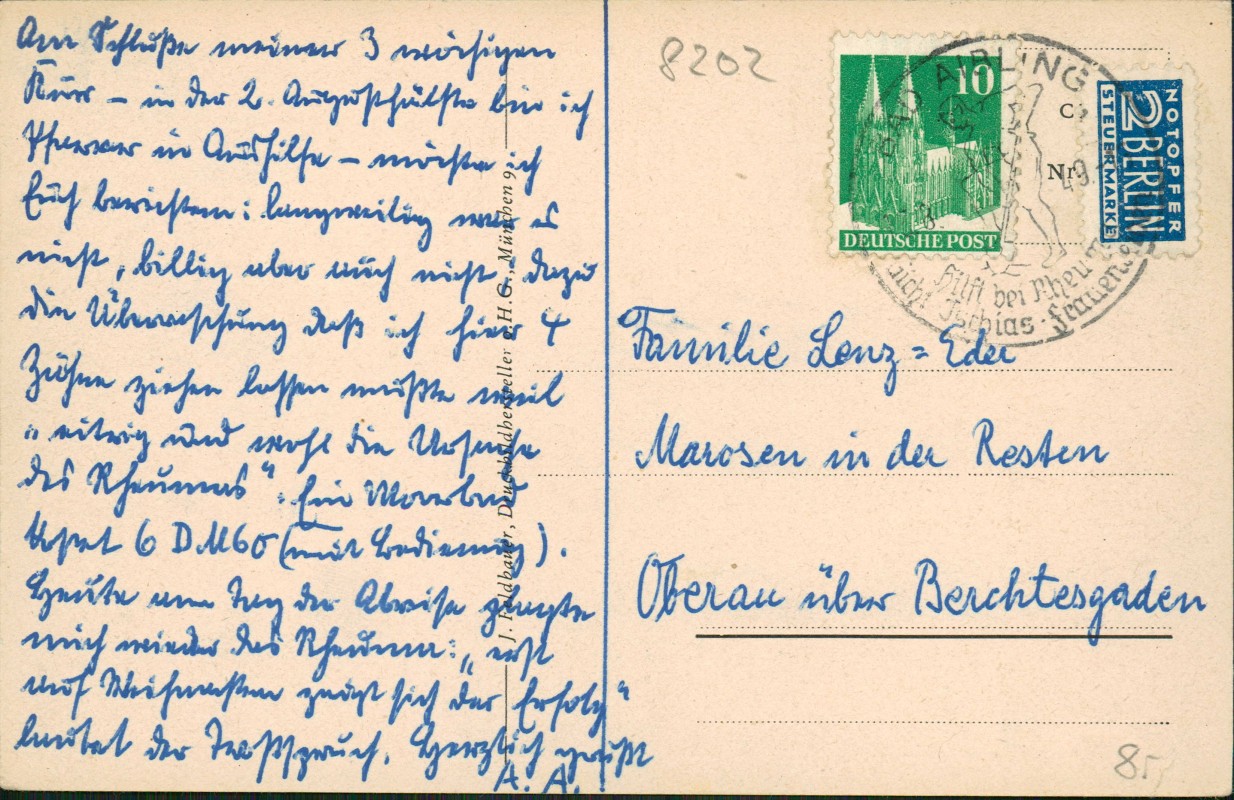 Am Schluße meiner 3 wöchigen
Kur – in der 2. Augusthälfte bin ich
Pfarrer in Aushilfe – möchte ich
Euch berichten: langweilig war es
nicht, billig aber auch nicht, dazu
die Überraschung daß ich hier 4
Zähne ziehen lassen mußte weil
„eitrig und wohl die Ursache
des Rheumas“. Ein Moorbad
kostet 6 DM 60 (mit Bedienung).
Heute am Tag der Abreise plagte
mich wieder das Rheuma: „erst
auf Weihnachten zeigt sich der Erfolg“
lautet der Trostspruch. Herzlich grüßt
A. A.
J. Feldbauer, Druckbildhersteller e.H.G., München 9
8202
10
DEUTSCHE POST
BAD AIBLING
49
hilft bei Rheuma
Gicht Ischias - Frauen
C
Nr
NOTOPFER
2 BERLIN
STEUERMARKE
Familie Lenz = Eder
Marosen in der Resten
Oberau über Berchtesgaden
85,-